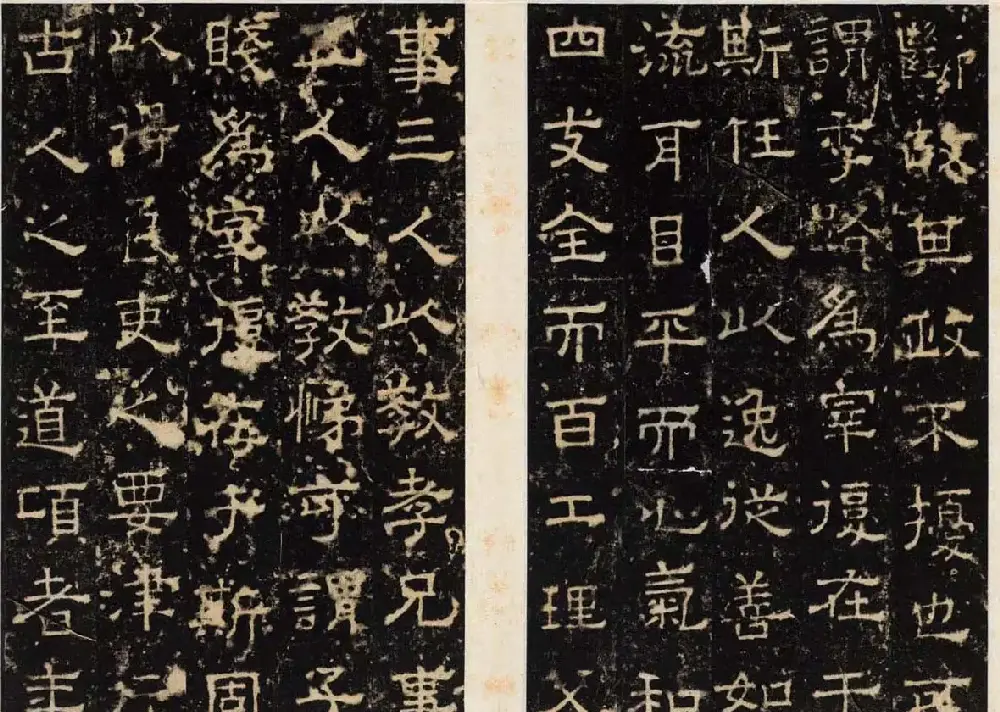 故其政不擾也可
謂季路爲宰復在于
斯任人以逸從善如
流耳目平而心氣和
四支全而百工理父
事三人以教孝兄事
五人以教悌可謂子
賤爲宰復在于斯固
以得良吏之要津
古人之至道項者